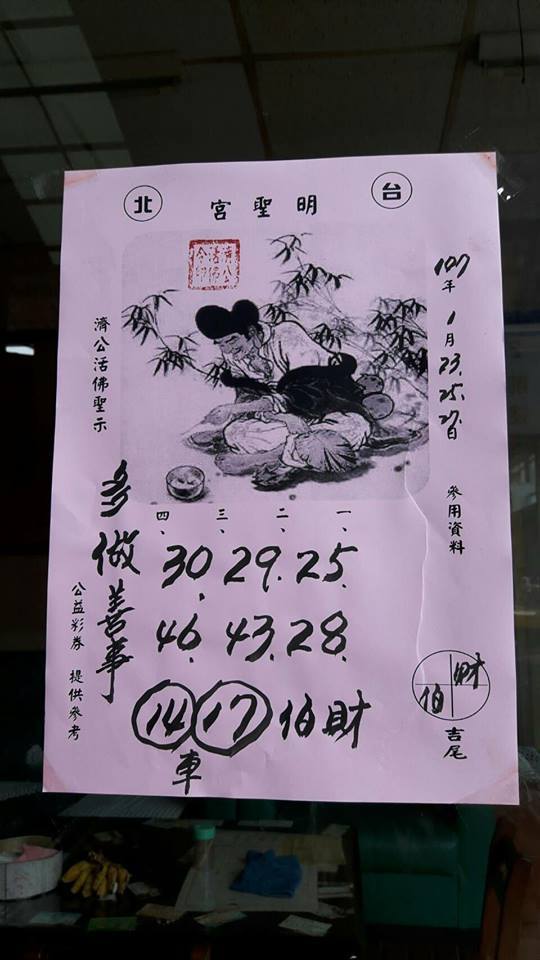 台北
明聖宮
濟公活佛令印
107年1月23.25.27日
參用資料
財伯
吉尾
一、二、三、四、
25.29.30
28.43.46
財伯 17 14
車
濟公活佛聖示
多做善事
公益彩券 提供參考